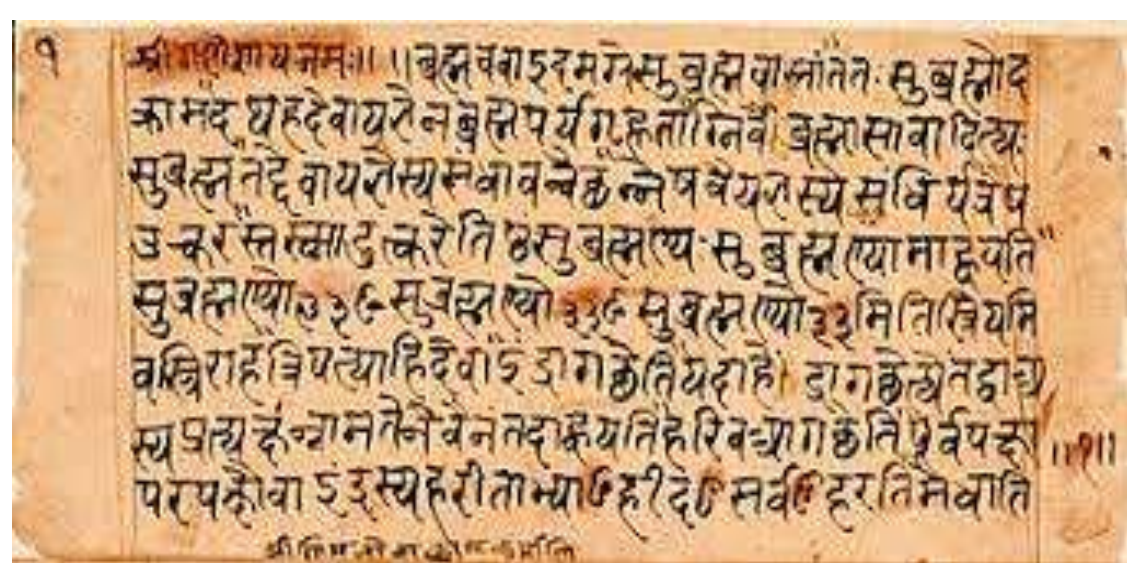 १
श्रीगणेशायनमः॥ ॥ब्रह्मचवाऽइदमग्रेसुब्रह्मचास्तांततःसुब्रह्मोद
क्रामदथहदेवायज्ञेनब्रह्मपर्यगृह्णताग्निर्वैब्रह्मासावादित्यः
सुब्रह्मतद्देवायज्ञस्यसंधावन्वैछन्नेषवैयज्ञस्यसंधिर्यत्रैष
उत्करस्तस्मादुत्करेतिष्ठसुब्रह्मण्यःसुब्रह्मण्यामाह्वयति
सुब्रह्मण्यो३३ꣳसुब्रह्मण्यो३३ꣳसुब्रह्मण्यो३३मितिस्त्रियमि
वत्रिराहत्रिषत्याहिदेवाऽइंद्रागछेतियदाहेंद्रागछेत्येतद्वाअ
स्यप्रत्यक्षंनामतेनैवैनंतदाह्वयतिहरिवआगछेतिपूर्वपक्षा ॥१॥
परपक्षौवाऽइंद्रस्यहरीताभ्याꣳहीदꣳसर्वꣳहरतिमेधाति